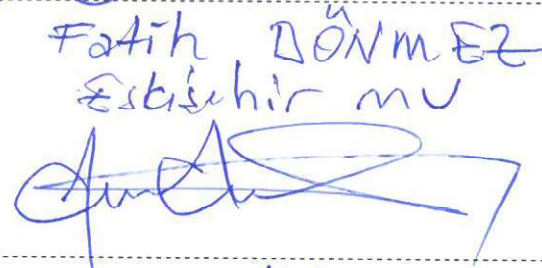 Fatih DÖNMEZ
Eskişehir MV